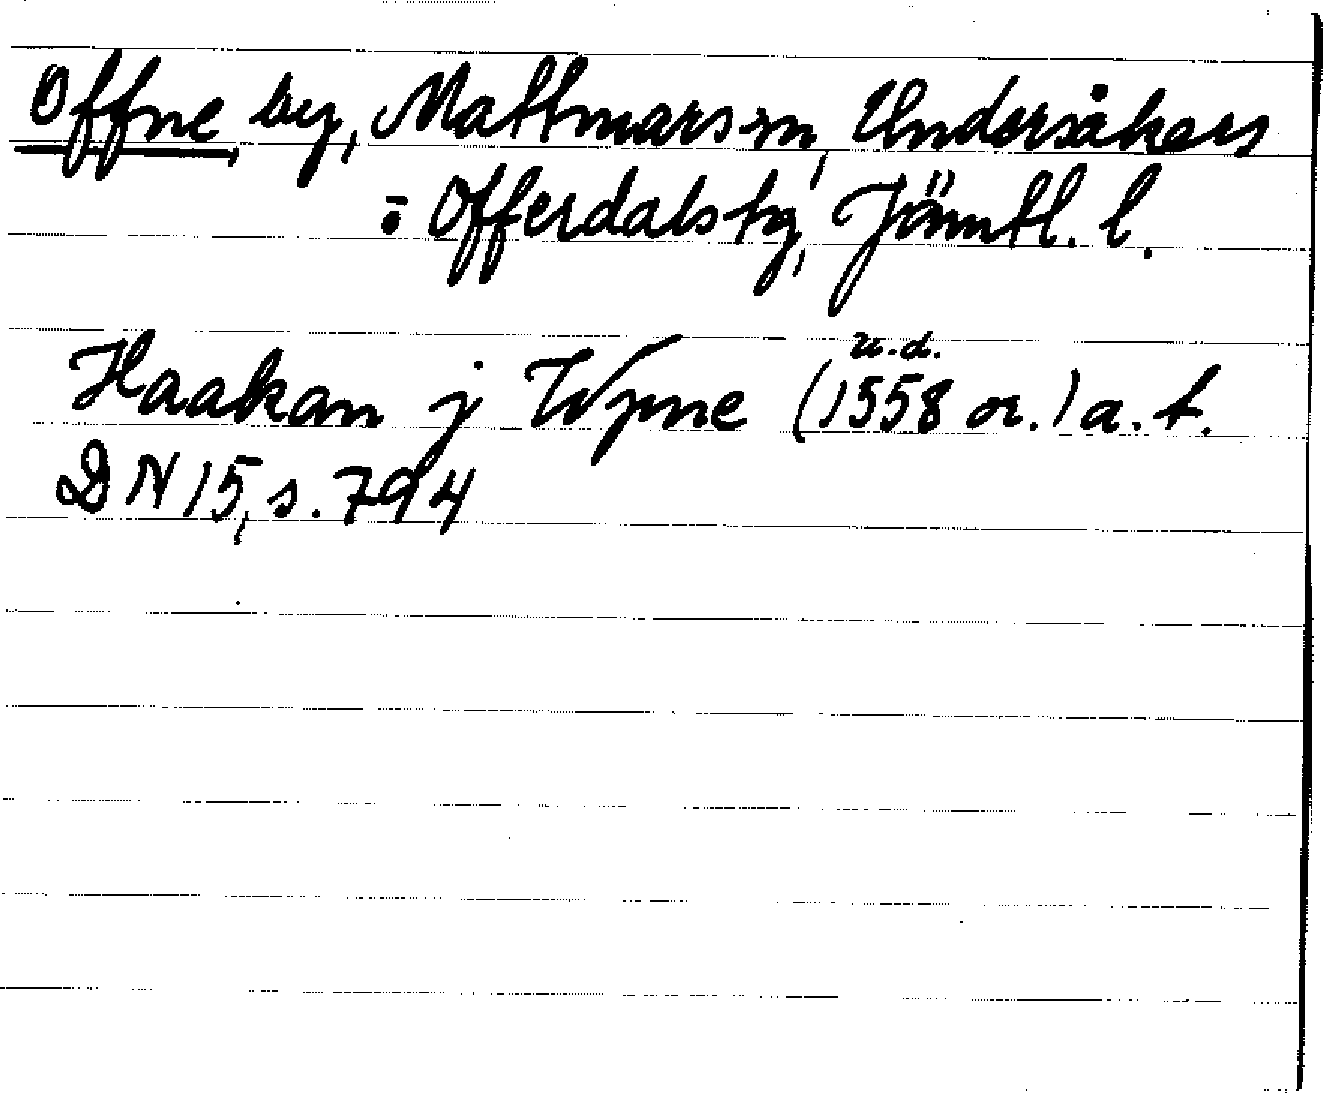 Offne, by, Mattmars sn, Undersåkers
: Offerdals tg, Jämtl. l.
u.d.
Haakan j Wpne (1558 or.) a. f.
DN 15, s. 794